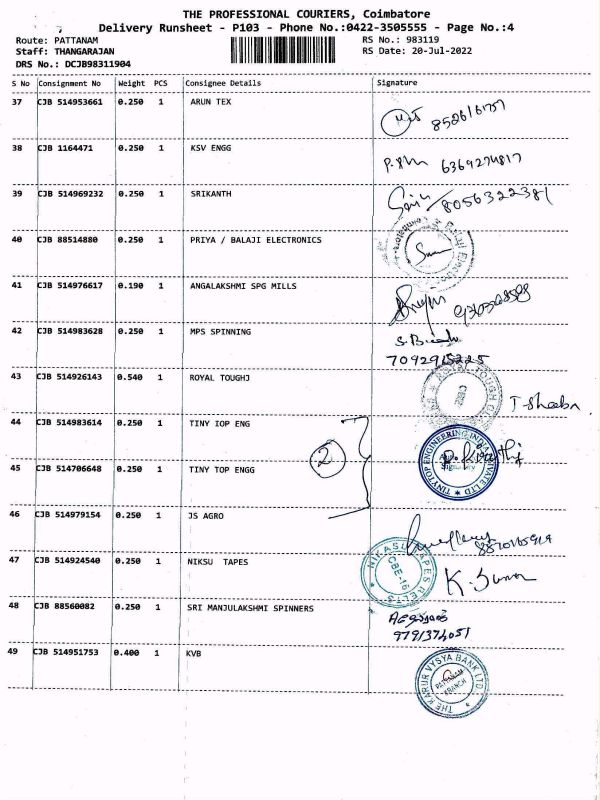 THE PROFESSIONAL COURIERS, Coimbatore
Delivery Runsheet - P103 - Phone No.:0422-3505555 - Page No.:4
Route: PATTANAM RS No.: 983119
Staff: THANGARAJAN RS Date: 20-Jul-2022
DRS No.: DCJB98311904
S No Consignment No Weight PCS Consignee Details Signature
37 CJB 514953661 0.250 1 ARUN TEX
38 CJB 1164471 0.250 1 KSV ENGG 6369274817
39 CJB 514969232 0.250 1 SRIKANTH 8056322381
40 CJB 88514880 0.250 1 PRIYA / BALAJI ELECTRONICS
41 CJB 514976617 0.190 1 ANGALAKSHMI SPG MILLS
42 CJB 514983628 0.250 1 MPS SPINNING
43 CJB 514926143 0.540 1 ROYAL TOUGHJ T-Sheeba
44 CJB 514983614 0.250 1 TINY IOP ENG
2
TINYTOP ENGINEERING INDIA PRIVATE LTD
45 CJB 514706648 0.250 1 TINY TOP ENGG
46 CJB 514979154 0.250 1 JS AGRO
47 CJB 514924540 0.250 1 NIKSU TAPES
NIKASU TAPES BELTS CBE-16
48 CJB 88560082 0.250 1 SRI MANJULAKSHMI SPINNERS
9791374051
49 CJB 514951753 0.400 1 KVB
THE KARUR VYSYA BANK LTD
PATTANAM
BRANCH